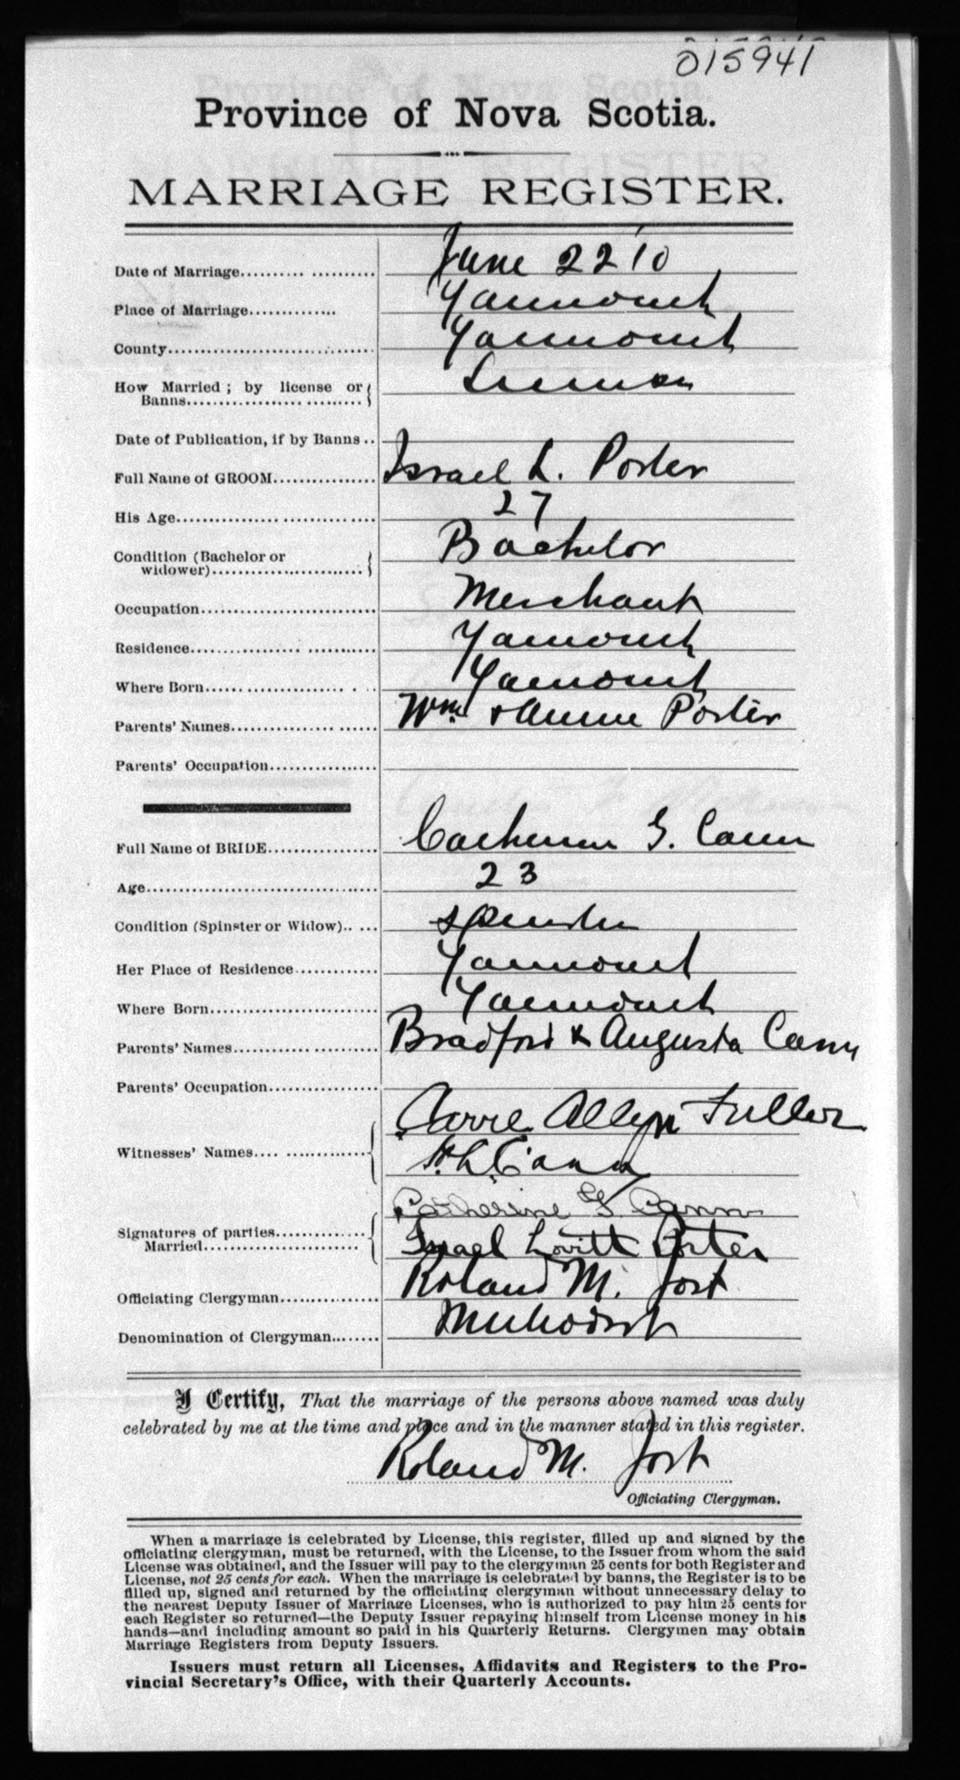 015941
Province of Nova Scotia.
MARRIAGE REGISTER.
Date of Marriage.......... ............ June 22 '10
Place of Marriage.............. Yarmouth
County............................. Yarmouth
How Married ; by license or
Banns.............................. License
Date of Publication, if by Banns ..
Full Name of GROOM................ Israel L. Porter
His Age.................................. 27
Condition (Bachelor or
widower)............................ Bachelor
Occupation............................. Merchant
Residence.................. ........... Yarmouth
Where Born........................ . .. Yarmouth
Parents' Names........................ Wm. & Annie Porter
Parents' Occupation.................
Full Name of BRIDE................. Catherine G. Cann
Age....................................... 23
Condition (Spinster or Widow).. ... Spinster
Her Place of Residence............. Yarmouth
Where Born............................. Yarmouth
Parents' Names........................ Bradford & Augusta Cann
Parents' Occupation.................
Witnesses' Names.... ............. Allyn Fuller
Cann
Catherine G. Cann
Signatures of parties..............
Married............................ Israel Lovitt Porter
Officiating Clergyman................ Roland M. Jost
Denomination of Clergyman........ Methodist
I Certify, That the marriage of the persons above named was duly
celebrated by me at the time and place and in the manner stated in this register.
Roland M. Jost
Officiating Clergyman.
When a marriage is celebrated by License, this register, filled up and signed by the
officiating clergyman, must be returned, with the License, to the Issuer from whom the said
License was obtained, and the Issuer will pay to the clergyman 25 cents for both Register and
License, not 25 cents for each. When the marriage is celebrated by banns, the Register is to be
filled up, signed and returned by the officiating clergyman without unnecessary delay to
the nearest Deputy Issuer of Marriage Licenses, who is authorized to pay him 25 cents for
each Register so returned—the Deputy Issuer repaying himself from License money in his
hands—and including amount so paid in his Quarterly Returns. Clergymen may obtain
Marriage Registers from Deputy Issuers.
Issuers must return all Licenses, Affidavits and Registers to the Pro-
vincial Secretary's Office, with their Quarterly Accounts.